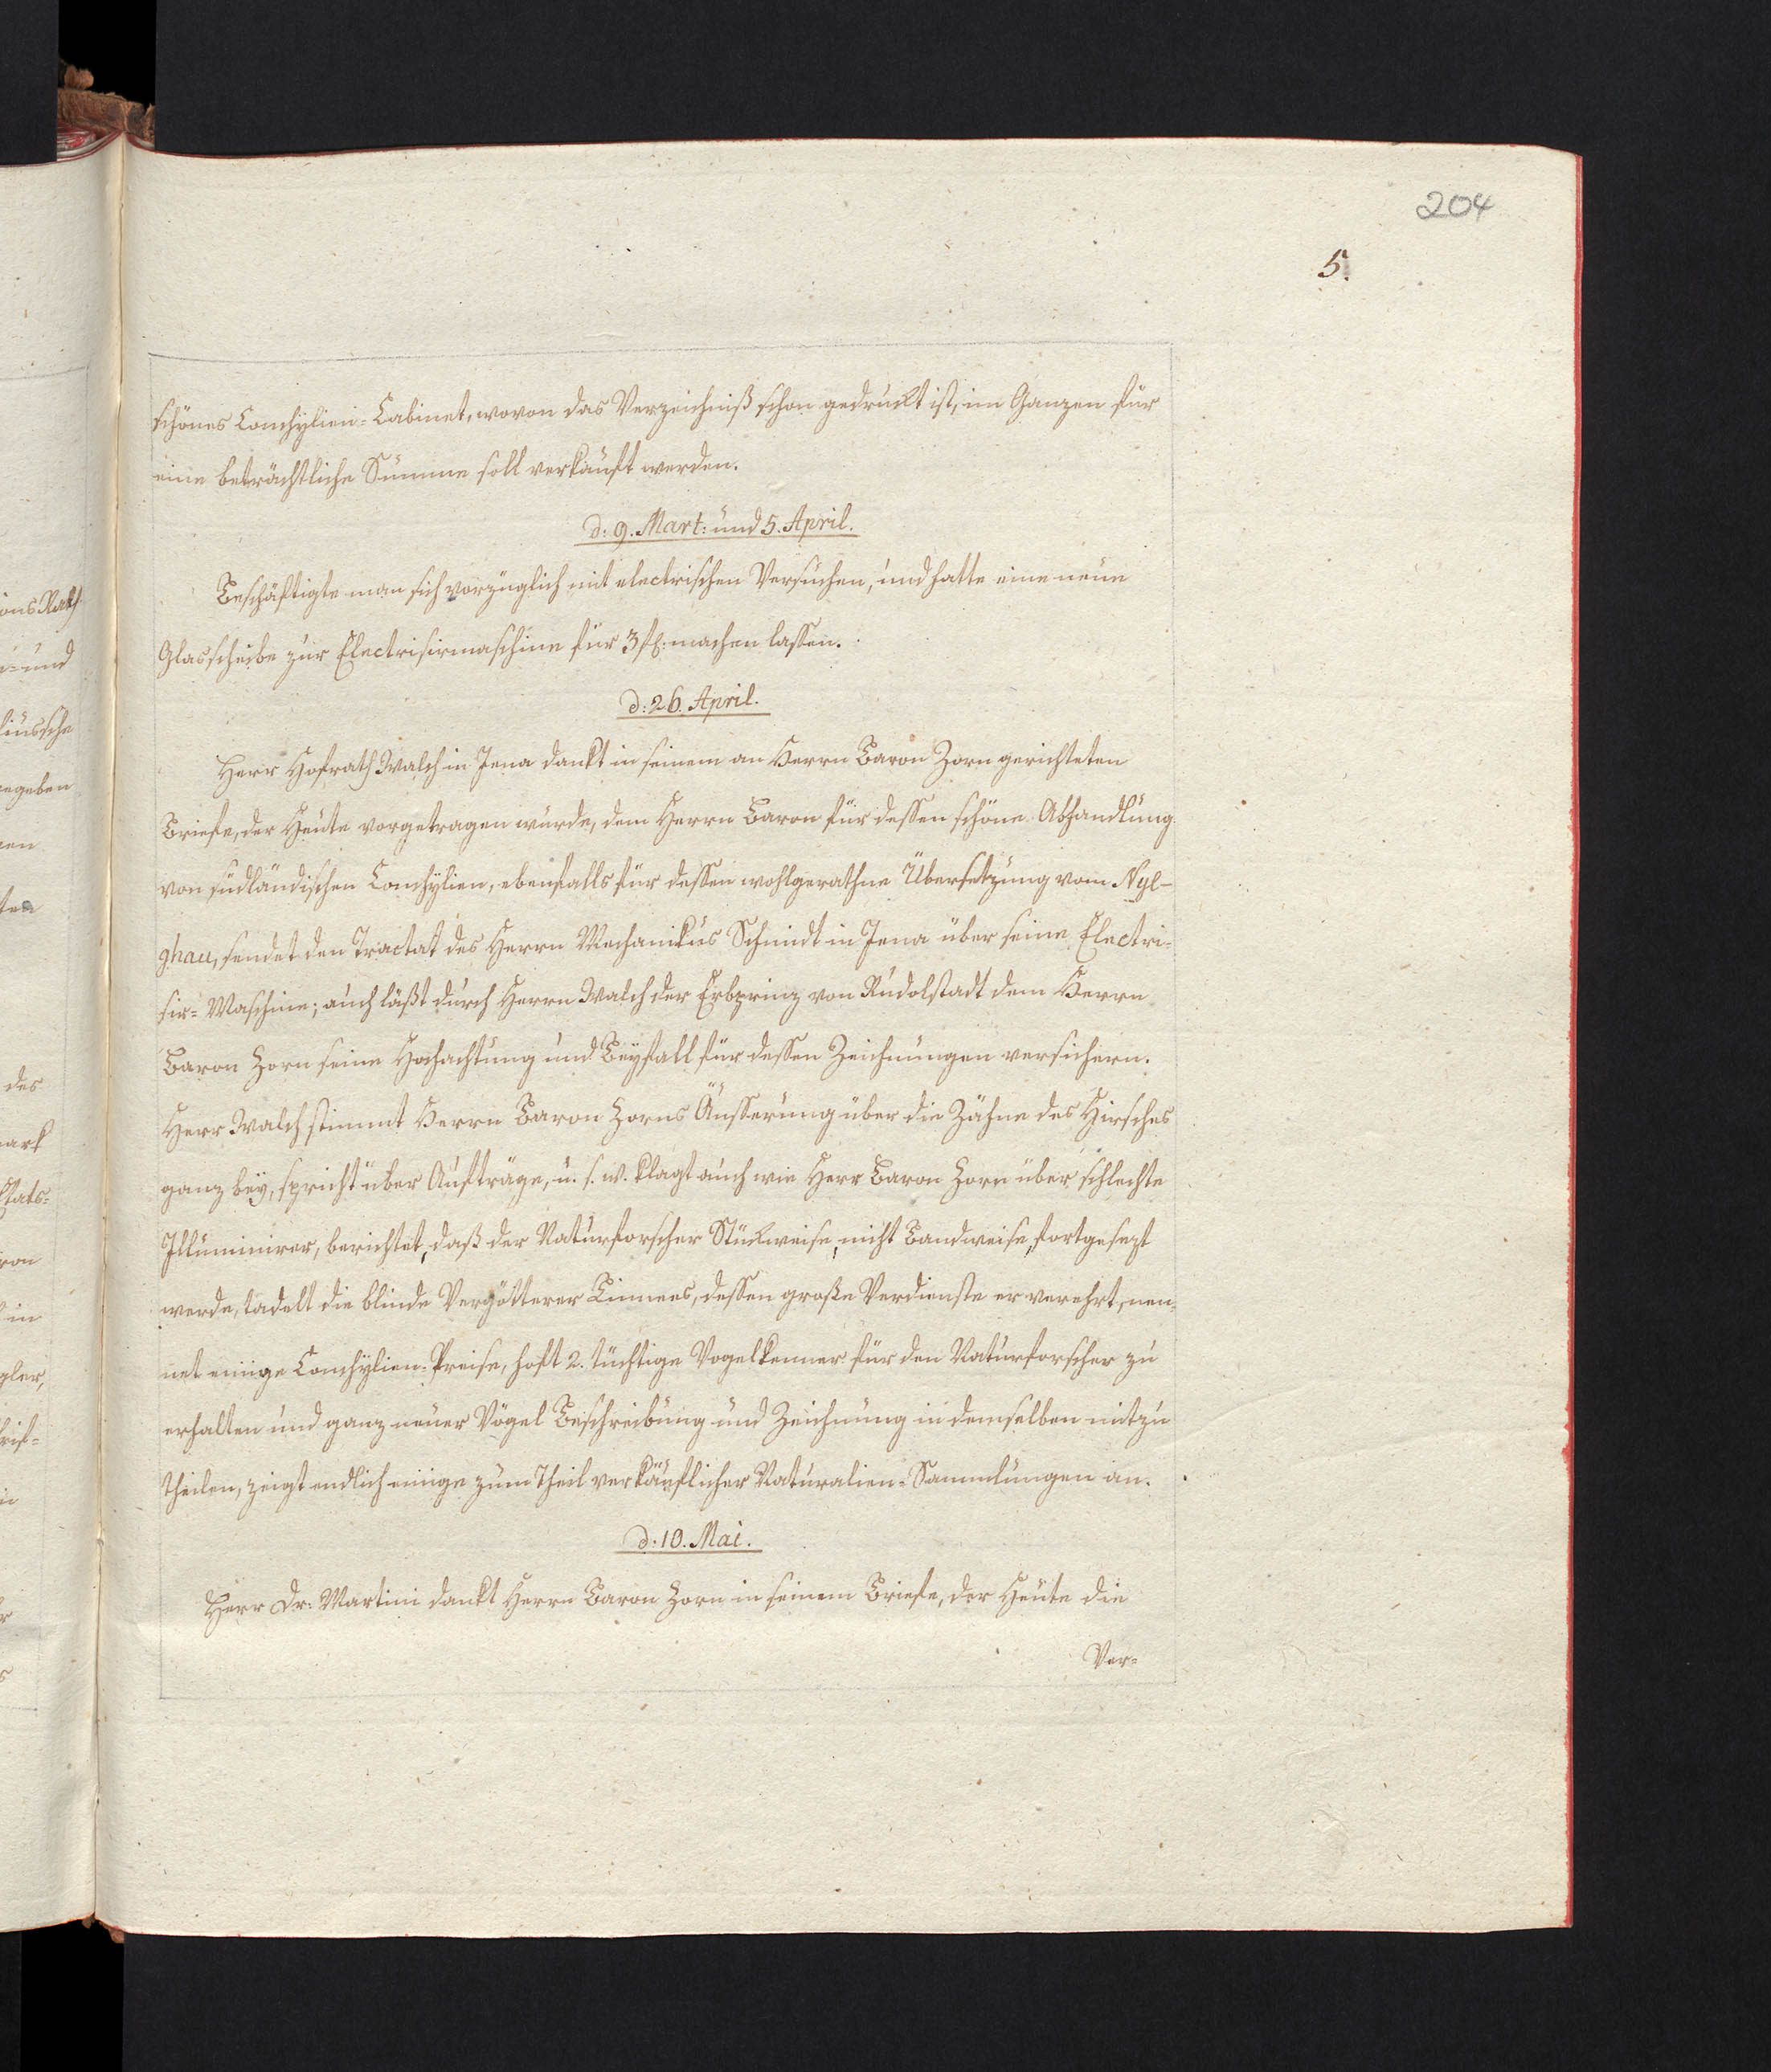 204
5.
schönes Conchylien-Cabinet, wovon das Verzeichniß schon gedruckt ist, im Ganzen für
eine beträchtliche Summe soll verkauft werden.
d: 9. Mart: und 5. April.
Beschäftigte man sich vorzüglich mit electrischen Versuchen, und hatte eine neue
Glasscheibe zur Electrisirmaschine für 3 fl: machen lassen.
d: 26. April.
Herr Hofrath Walch in Jena dankt in seinem an Herrn Baron Zorn gerichteten
Briefe, der Heute vorgetragen wurde, dem Herrn Baron für dessen schöne Abhandlung
von südländischen Conchylien, ebenfalls für dessen wohlgerathne Übersetzung vom Nyl-
ghau, sendet den Tractat des Herrn Mechanikus Schmidt in Jena über seine Electri-
sir-Maschine; auch läßt durch Herrn Walch der Erbprinz von Rudolstadt dem Herrn
Baron Zorn seine Hochachtung und Beyfall für dessen Zeichnungen versichern.
Herr Walch stimmt Herrn Baron Zorns Äusserung über die Zähne des Hirsches
ganz bey, spricht über Aufträge, u. s. w. klagt auch wie Herr Baron Zorn über schlechte
Illuminirer, berichtet, daß der Naturforscher Stückweise, nicht Bandweise, fortgesezt
werde, tadelt die blinde Vergötterer Linnees, dessen große Verdienste er verehrt, nen-
net einige Conchylien-Preise, hoft 2. tüchtige Vogelkenner für den Naturforscher zu
erhalten und ganz neuer Vögel Beschreibung und Zeichnung in demselben mitzu
theilen, zeigt endlich einige zum Theil verkäuflicher Naturalien-Sammlungen an.
d: 10. Mai.
Herr Dr: Martini dankt Herrn Baron Zorn in seinem Briefe, der Heute die
Ver-